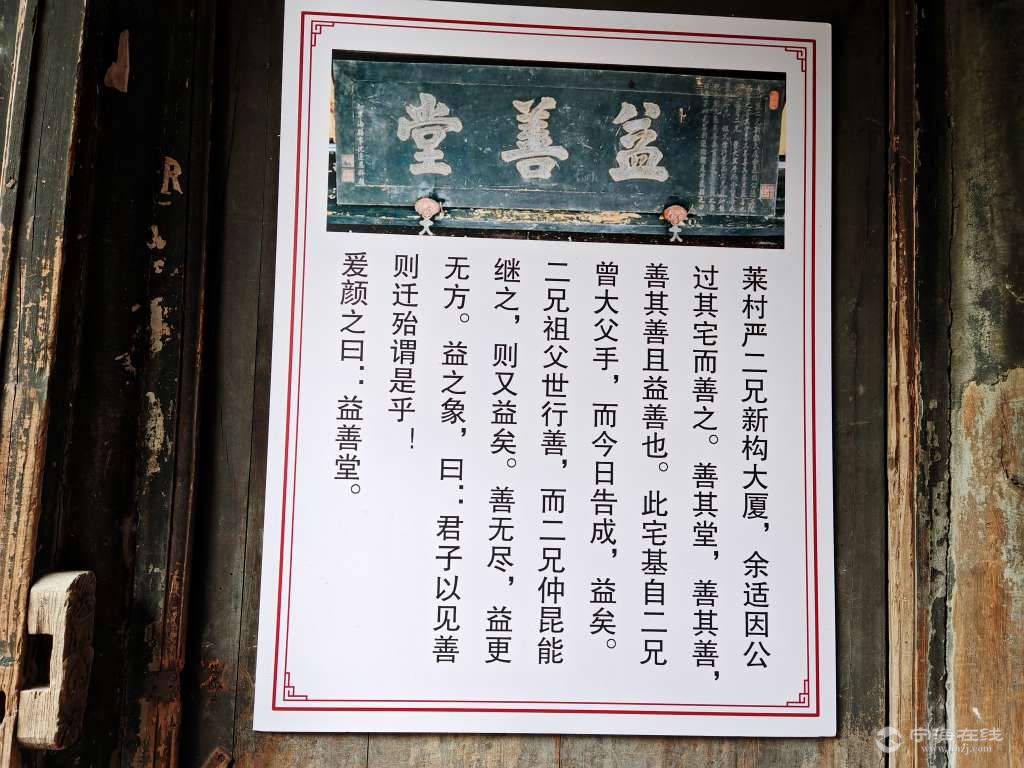 益善堂
莱村严二兄新构大厦，余适因公
过其宅而善之。善其堂，善其善，
善其善且益善也。此宅基自二兄
曾大父手，而今日告成，益矣。
二兄祖父世行善，而二兄仲昆能
继之，则又益矣。善无尽，益更
无方。益之象，曰：君子以见善
则迁殆谓是乎！
爰颜之曰：益善堂。
R
宁海在线